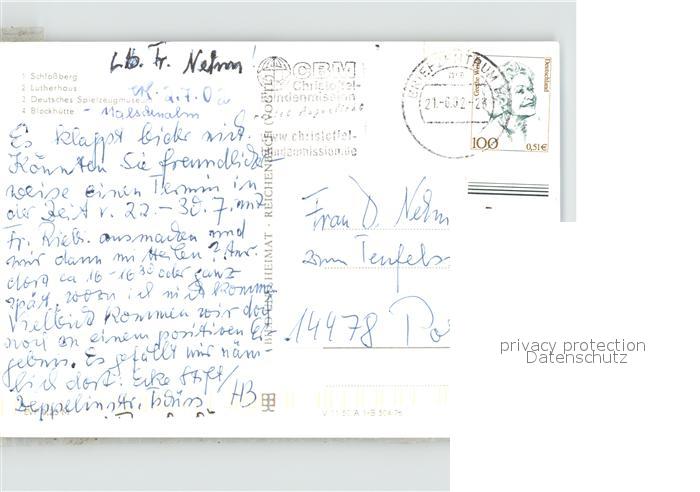 Lb. Fr. Nehm!
1 Schloßberg
2 Lutherhaus
3 Deutsches Spielzeugmuseum
4 Blockhütte
Es klappt leider nicht.
Könnten Sie freundlicher
weise einen Termin in
der Zeit v. 22.-30.7. mit
Fr. ausmachen und
mir dann mitteilen?
dort ca 16-16³⁰ oder ganz
spät, wozu ich nicht komme
Vielleicht kommen wir doch
noch zu einem positiven Er-
gebnis. Es gefällt mir näm-
lich dort. Ecke Stift/
Zeppelinstr. HB
BILD UND HEIMAT · REICHENBACH (VOGTL)
V 11 50 A 1-B 504/76
CBM
Christoffel-
Blindenmission
www.christoffel-
blindenmission.de
BRIEFZENTRUM
21.-6.02-21
Deutschland
100
0,51€
Frau D. Nehm
zum Teufels
14478 Po
privacy protection
Datenschutz